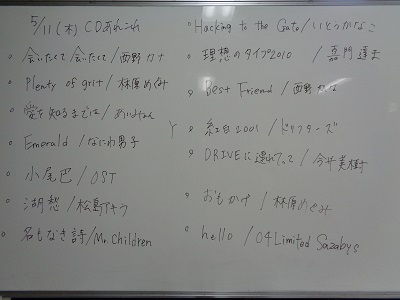 5/11(木) CDあれこれ
会いたくて 会いたくて/西野カナ
Plenty of grit/林原めぐみ
愛を知るまでは/あいみょん
Emerald/なにわ男子
小尾巴/OST
湖愁/松島アキラ
名もなき詩/Mr.Children
Hacking to the Gate/いとうかなこ
理想のタイプ2010 /嘉門達夫
Best Friend/西野カナ
紅白2001/ドリフターズ
DRIVEに連れてって/今井美樹
おもかげ/林原めぐみ
hello/04 Limited Sazabys